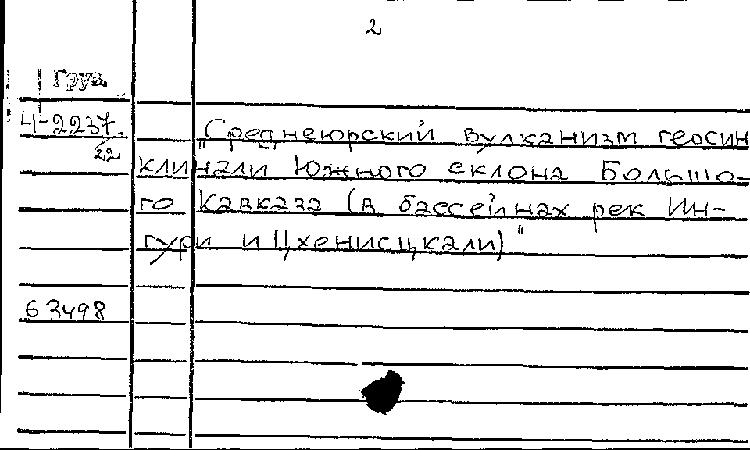 2
Груз.
Ч-2237
22
"Среднеюрский вулканизм геосин
клинали Южного склона Большо-
го Кавказа (в бассейнах рек Ин-
гури и Цхенисцкали)"
63498